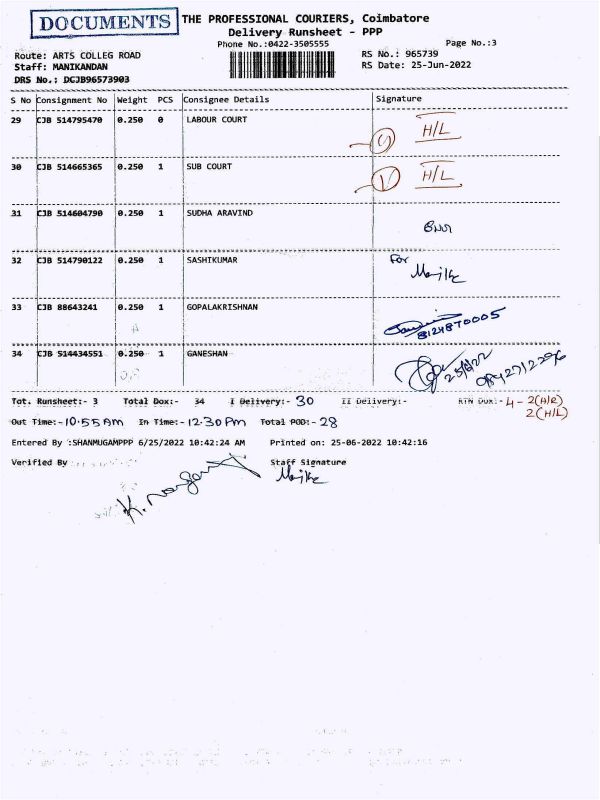 DOCUMENTS
THE PROFESSIONAL COURIERS, Coimbatore
Delivery Runsheet - PPP
Phone No.:0422-3505555
Page No.:3
Route: ARTS COLLEG ROAD
RS No.: 965739
Staff: MANIKANDAN
RS Date: 25-Jun-2022
DRS No.: DCJB96573903
S No Consignment No Weight PCS Consignee Details Signature
29 CJB 514795470 0.250 0 LABOUR COURT H/L
30 CJB 514665365 0.250 1 SUB COURT H/L
31 CJB 514604790 0.250 1 SUDHA ARAVIND
32 CJB 514790122 0.250 1 SASHIKUMAR For
33 CJB 88643241 0.250 1 GOPALAKRISHNAN 8124870005
34 CJB 514434551 0.250 1 GANESHAN 25/6/22
Tot. Runsheet:- 3 Total Dox:- 34 I Delivery:- 30 II Delivery:- RTN Dox:- 4 - 2(H/R)
2(H/L)
Out Time:- 10.55 Am In Time:- 12.30 Pm Total POD:- 28
Entered By :SHANMUGAMPPP 6/25/2022 10:42:24 AM Printed on: 25-06-2022 10:42:16
Verified By Staff Signature